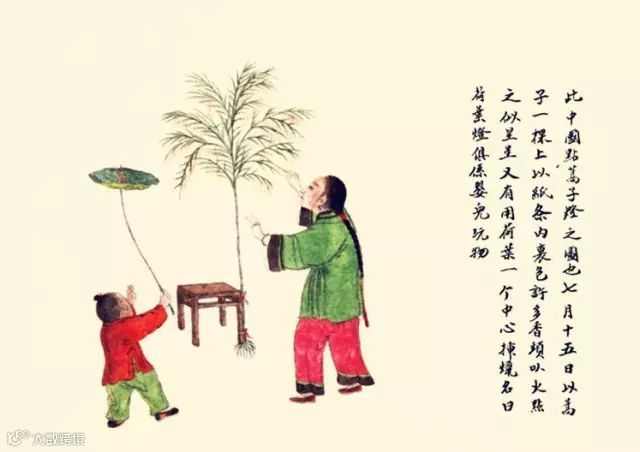 此中國點蒿子燈之圖也七月十五日以蒿
子一棵上以紙条內裹包許多香頭叭火點
之似星星又有用荷葉一个中心揷燒名曰
荷葉燈俱係嬰兒玩物
大數跨境